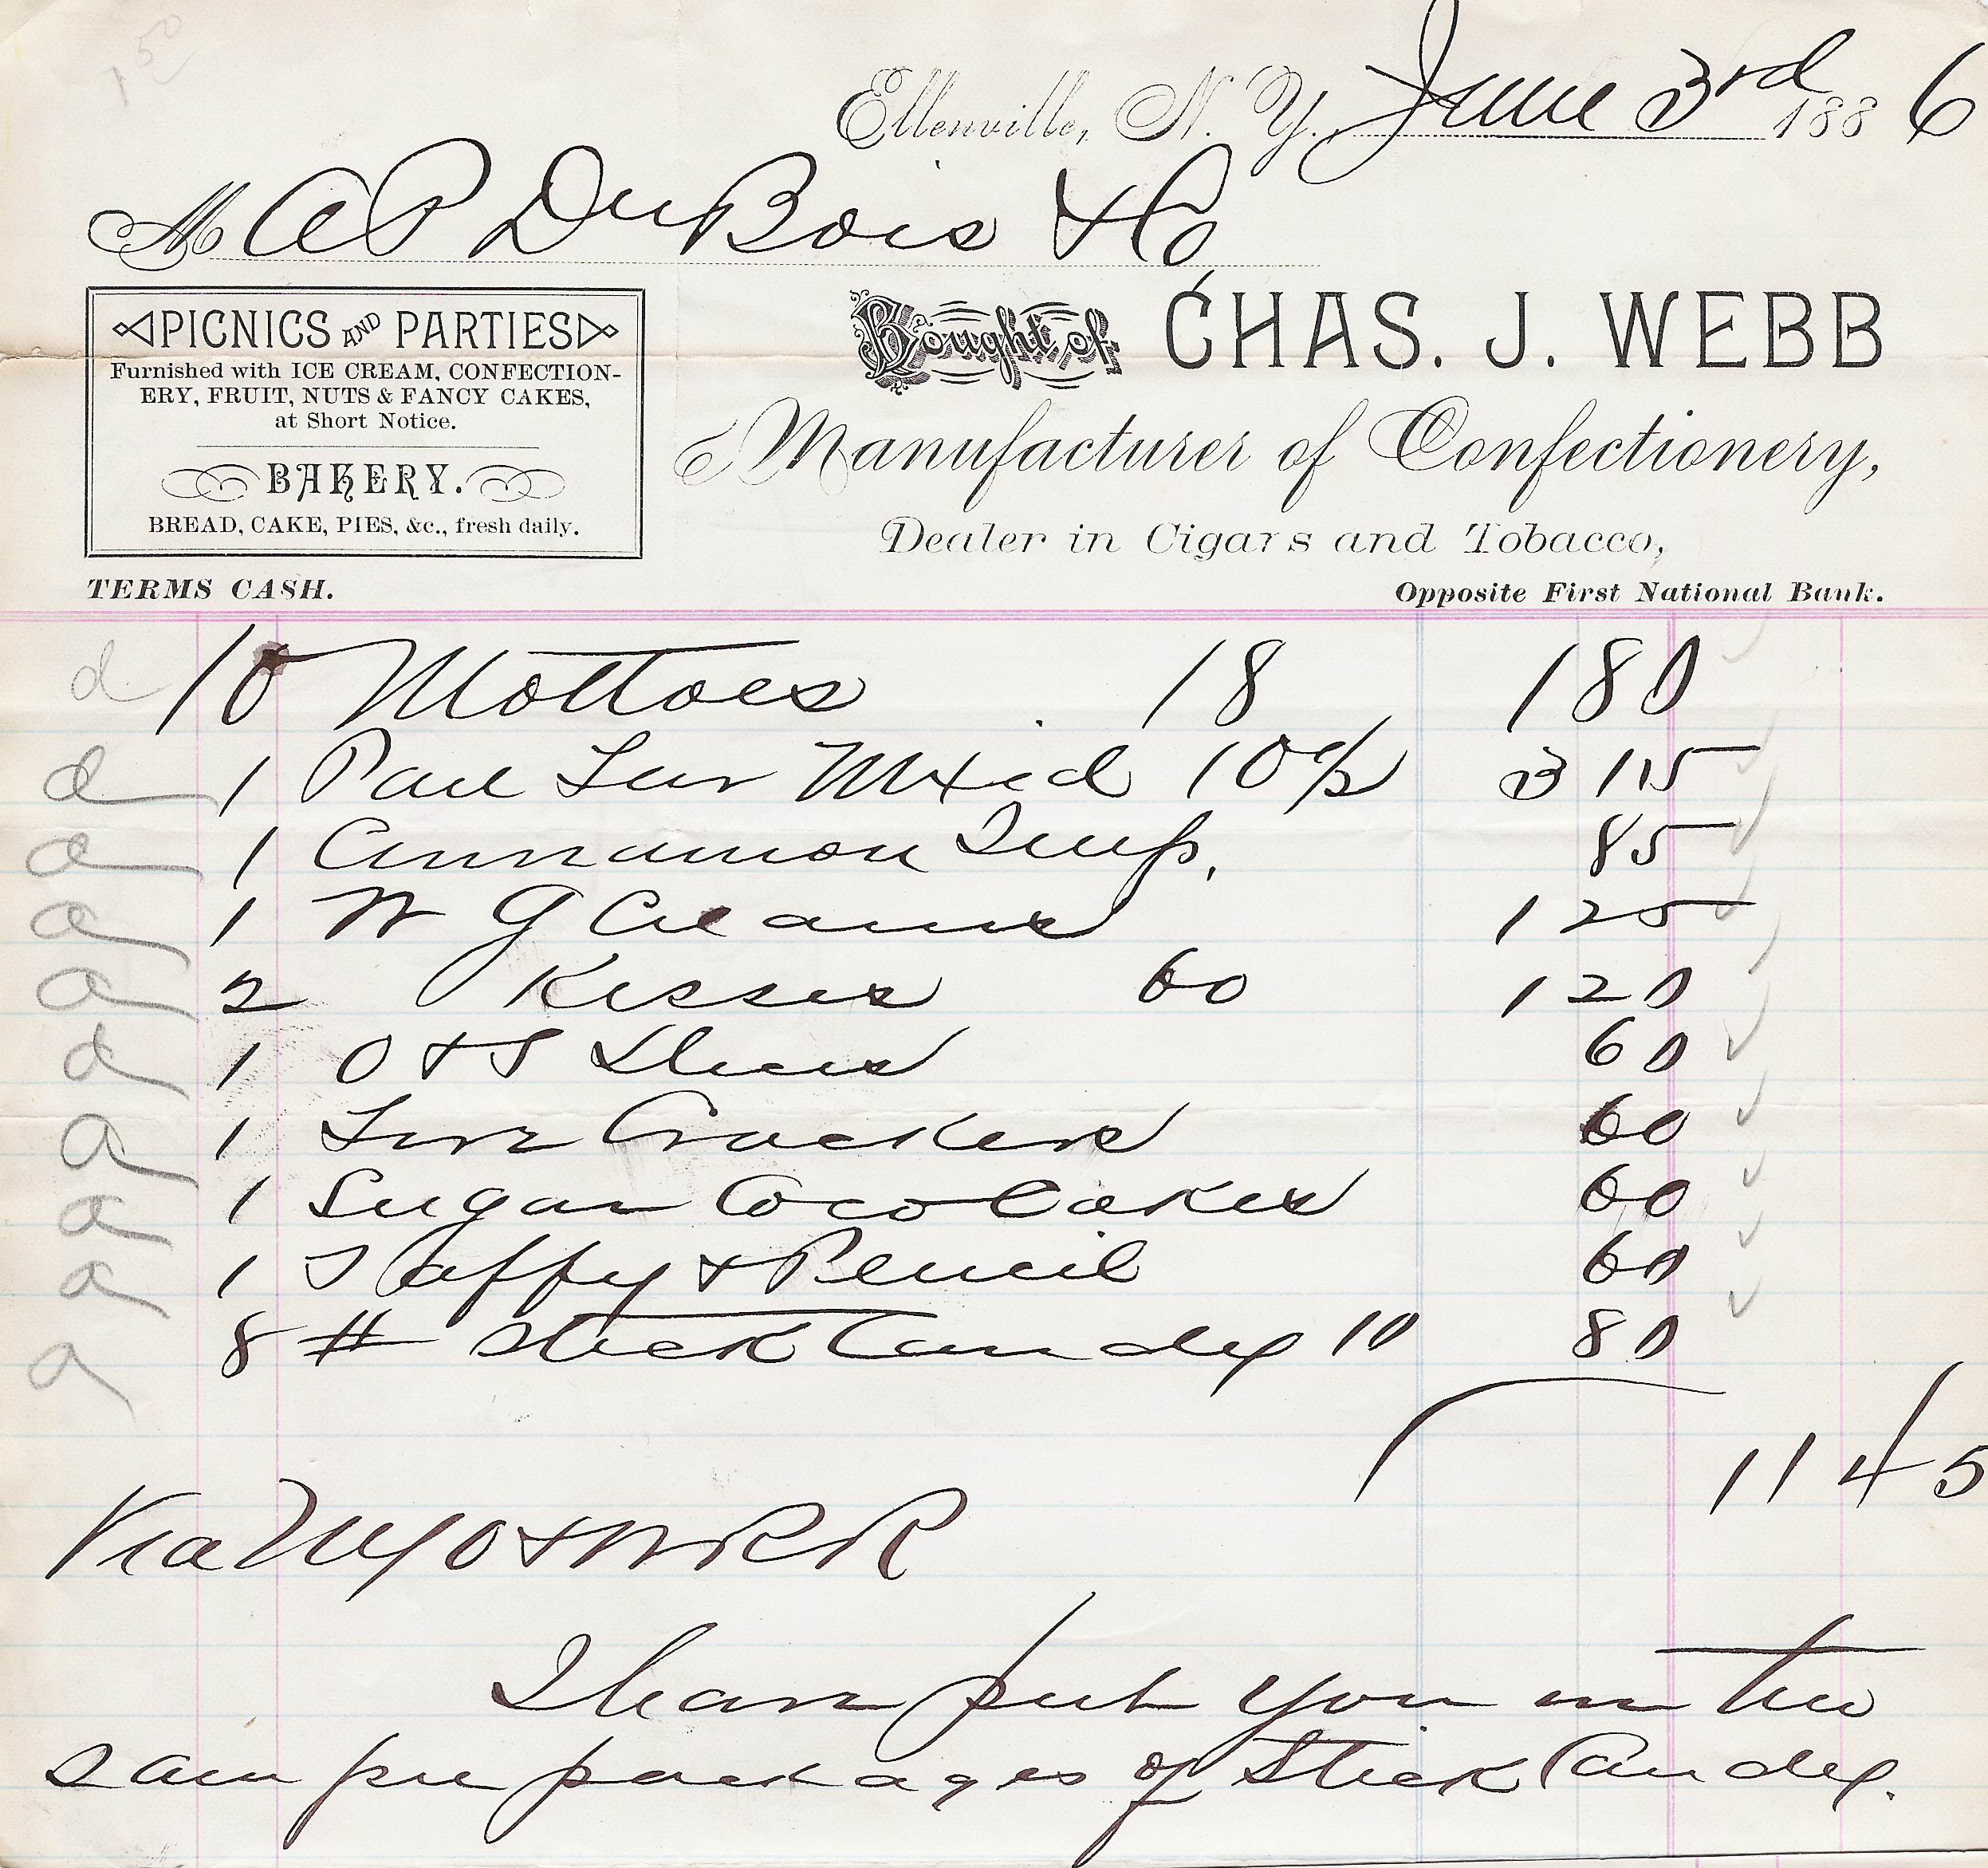 1 50
Ellenville, N. Y. June 3rd 1886
M A P DuBois & Co
PICNICS AND PARTIES
Furnished with ICE CREAM, CONFECTION-
ERY, FRUIT, NUTS & FANCY CAKES,
at Short Notice.
BAKERY.
BREAD, CAKE, PIES, &c., fresh daily.
Bought of CHAS. J. WEBB
Manufacturer of Confectionery,
Dealer in Cigars and Tobacco,
TERMS CASH. Opposite First National Bank.
d 10 Mottoes 18 1 80
d 1 Pail Mxed 10 1/2 3 15
d 1 Cinnamon Imps. 85
d 1 N G Creams 1 25
d 2 Kisses 60 1 20
d 1 O & S 60
d 1 Crackers 60
d 1 Sugar Coco Cakes 60
d 1 Taffy & Pencil 60
d 8 # Stick Candy 10 80
11 45
Via N Y O & W R R
I have put you in two
sample packages of Stick Candy.